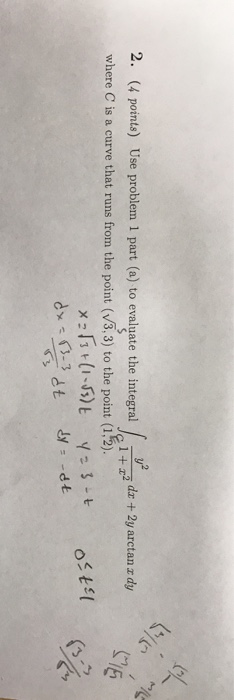 2. (4 points) Use problem 1 part (a) to evaluate the integral ∫_C y²/(1 + x²) dx + 2y arctan x dy
where C is a curve that runs from the point (√3, 3) to the point (1, 2).
x = √3 + (1-√3)t y = 3 - t 0 ≤ t ≤ 1
dx = √3-3/√3 dt dy = -dt